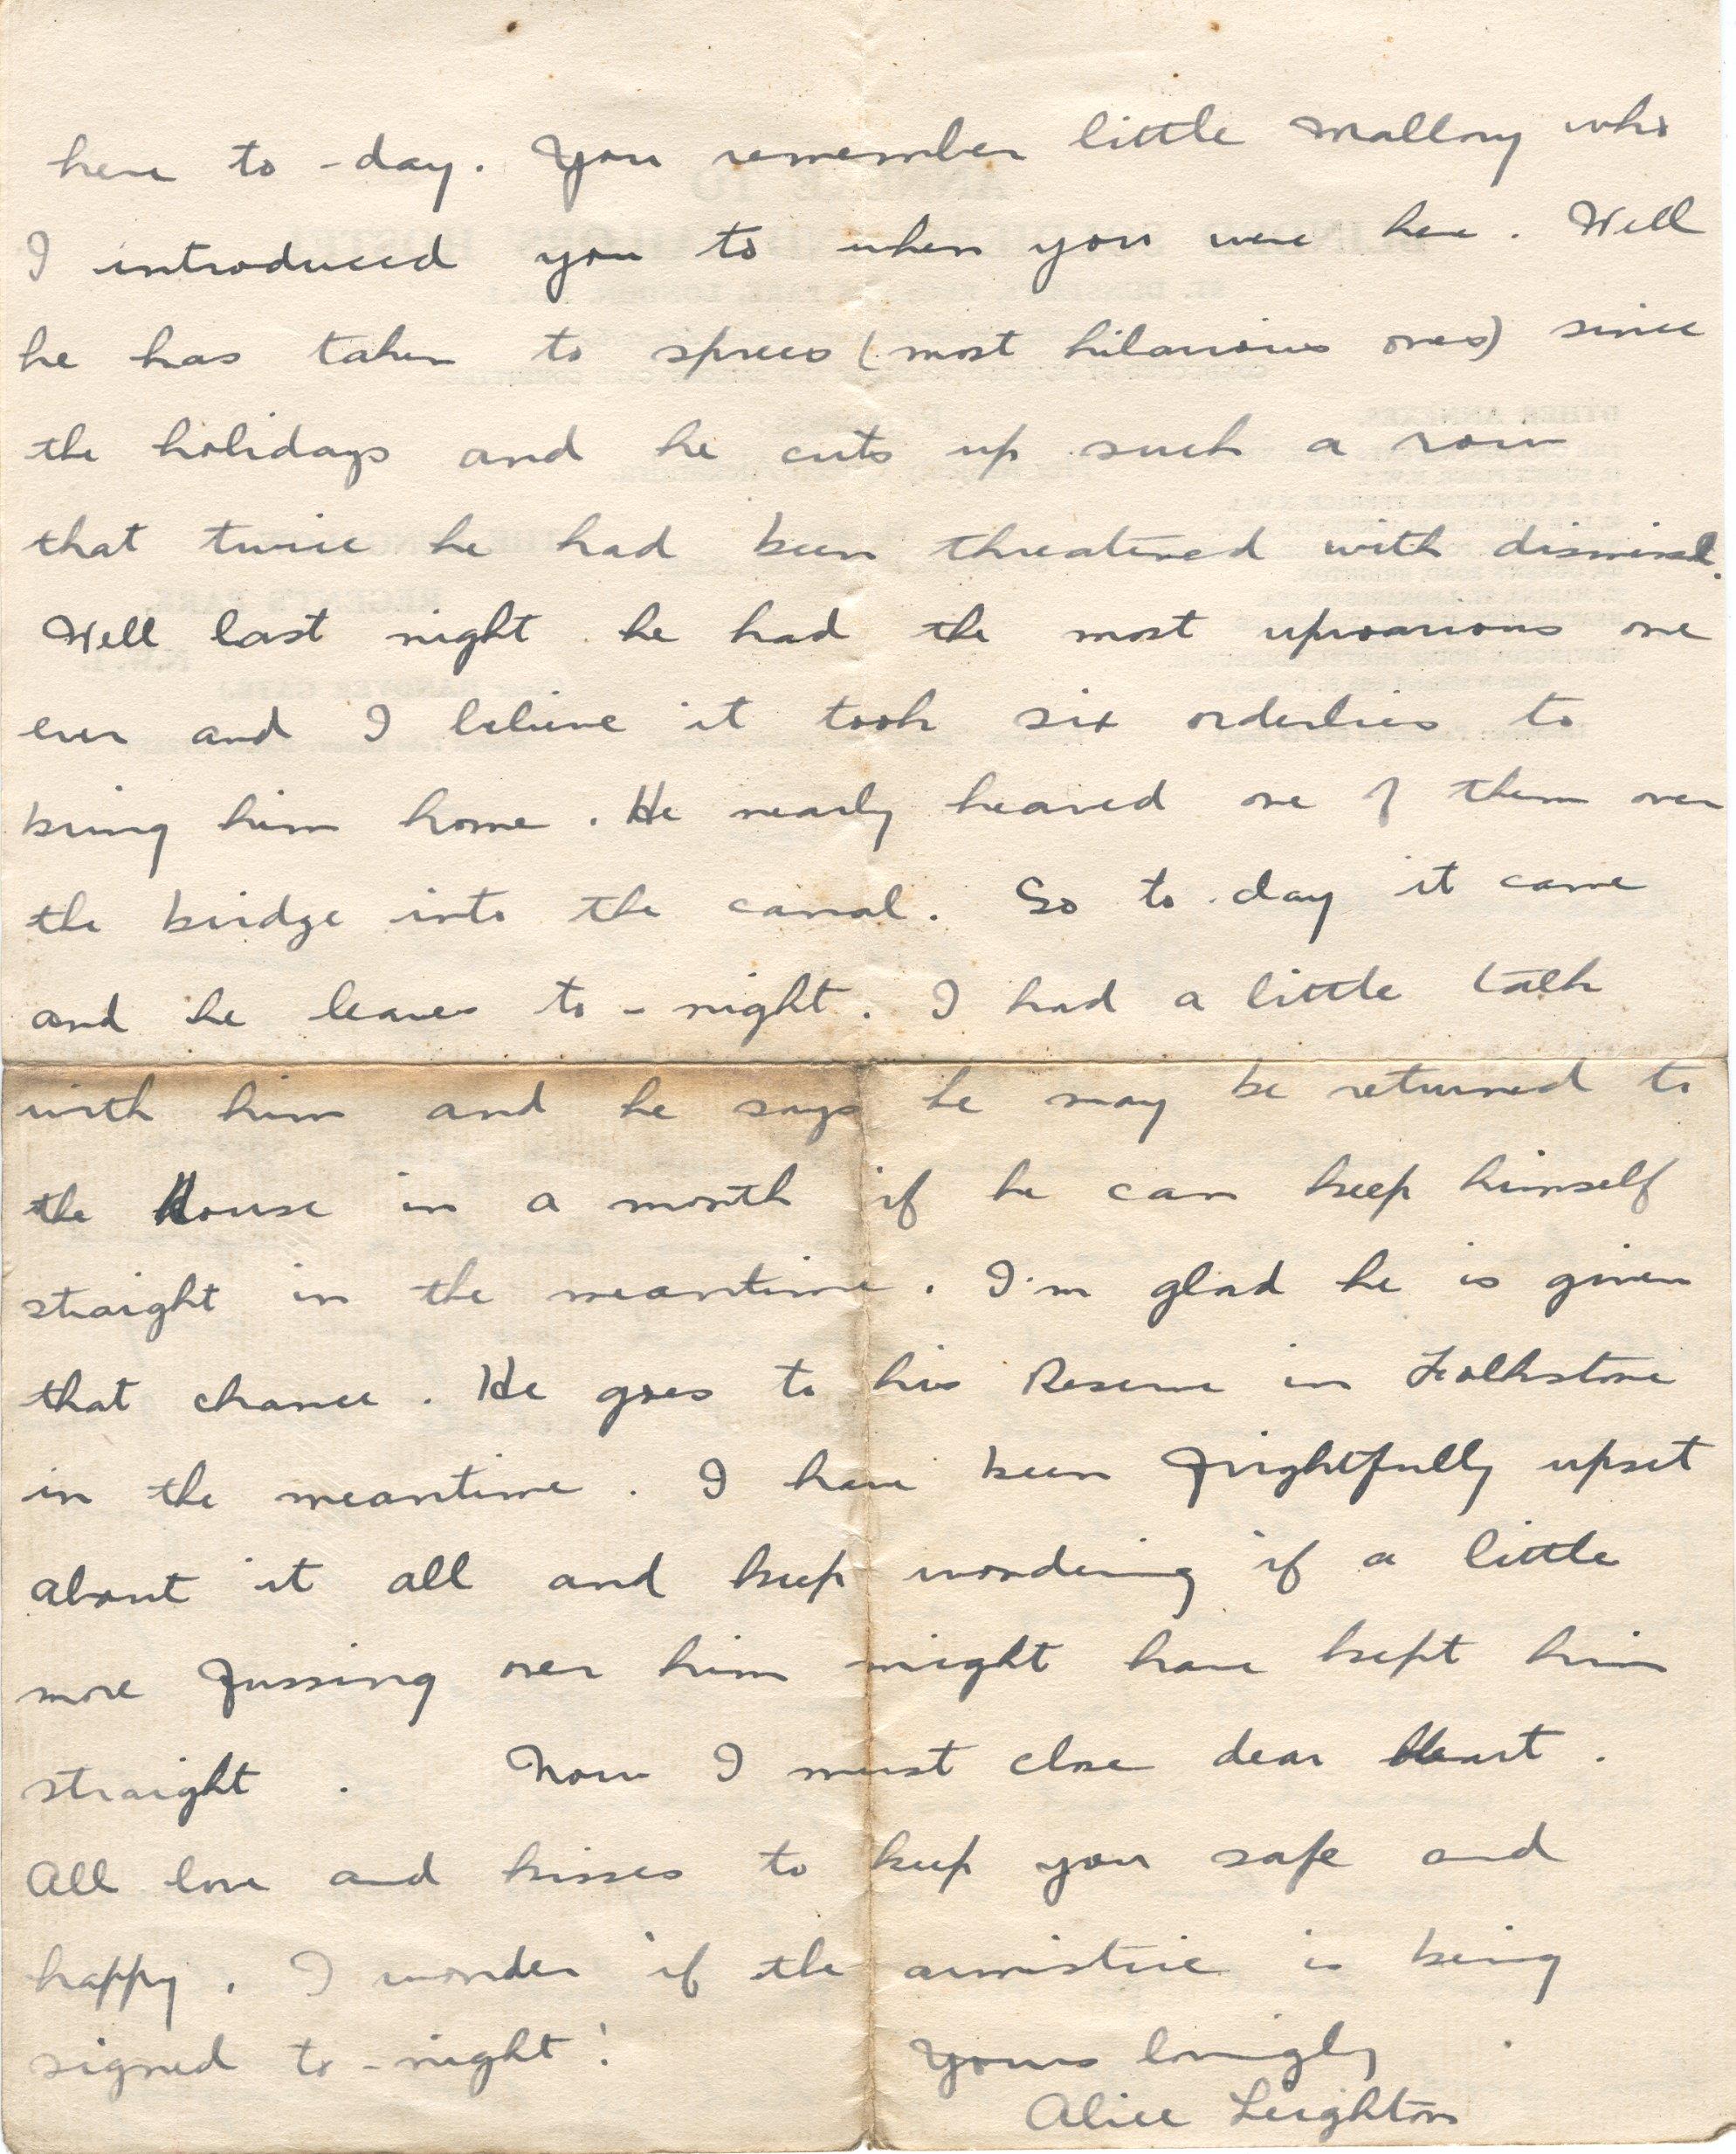 here to-day. You remember little Mallory who
I introduced you to when you were here. Well
he has taken to sprees (most hilarious ones) since
the holidays and he cuts up such a row
that twice he had been threatened with dismissal.
Well last night he had the most uproarious one
ever and I believe it took six orderlies to
bring him home. He nearly heaved one of them over
the bridge into the canal. So to day it came
and he leaves to-night. I had a little talk
with him and he says he may be returned to
the House in a month if he can keep himself
straight in the meantime. I'm glad he is given
that chance. He goes to his Reserve in Folkstone
in the meantime. I have been frightfully upset
about it all and keep wondering if a little
more fussing over him might have kept him
straight. Now I must close dear Heart.
All love and kisses to keep you safe and
happy. I wonder if the armistice is being
signed to-night!
Yours lovingly
Alice Leighton